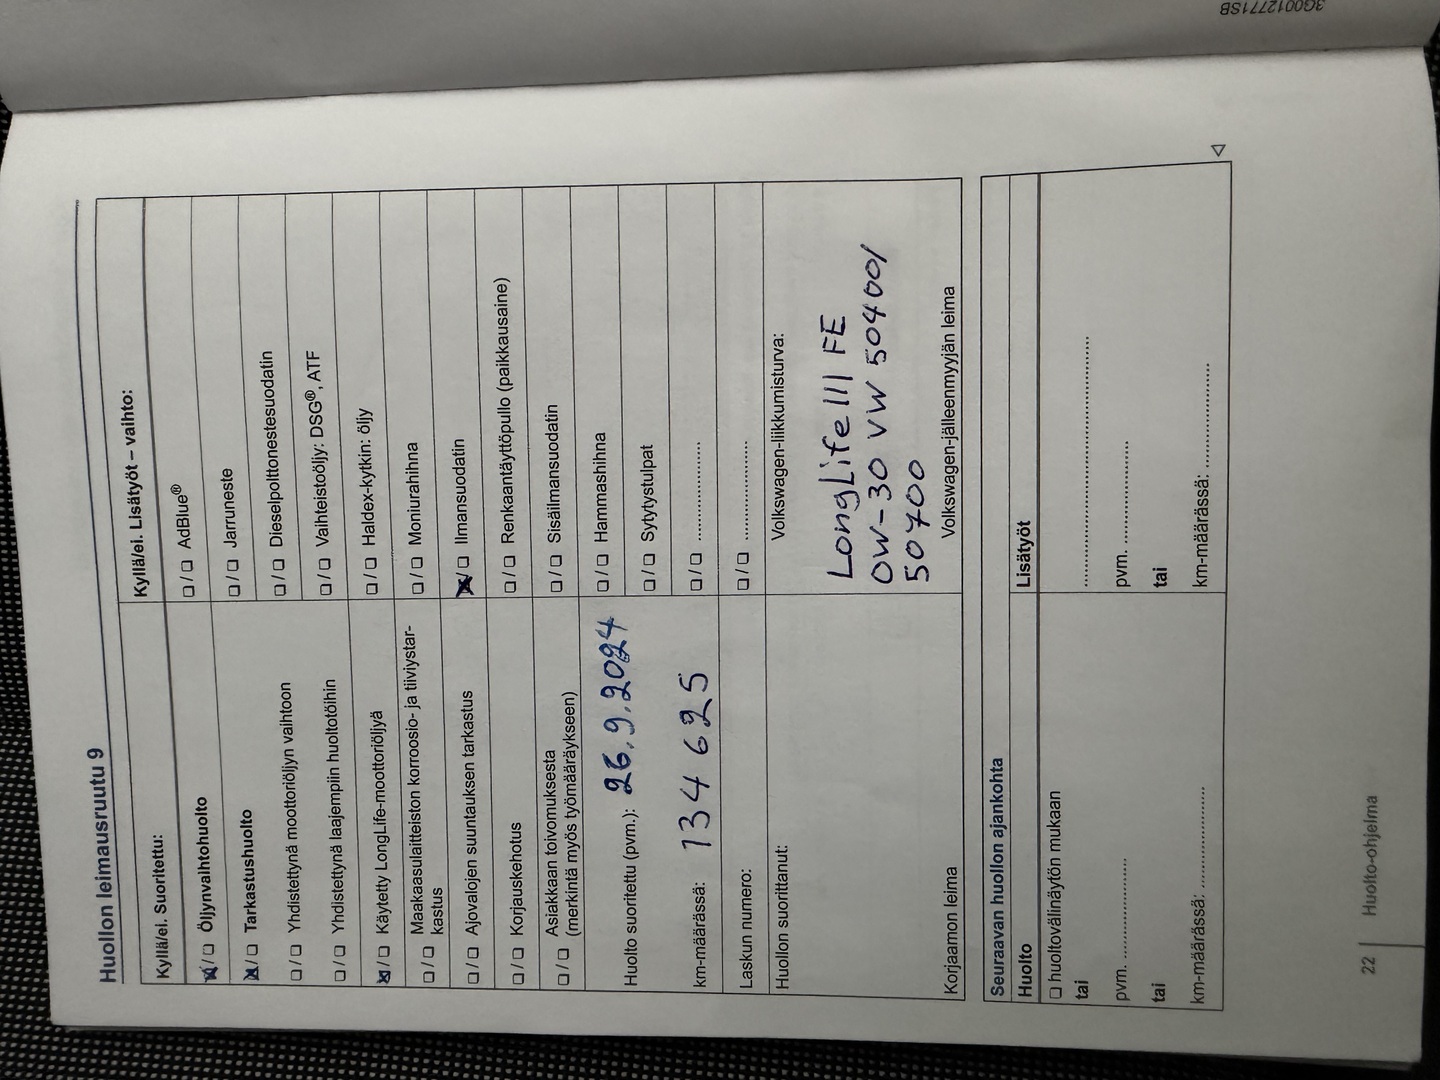 3G0012771SB
Huollon leimausruutu 9
Kyllä/ei. Suoritettu:
☒/☐ Öljynvaihtohuolto
☒/☐ Tarkastushuolto
☐/☐ Yhdistettynä moottoriöljyn vaihtoon
☐/☐ Yhdistettynä laajempiin huoltotöihin
☒/☐ Käytetty LongLife-moottoriöljyä
☐/☐ Maakaasulaitteiston korroosio- ja tiiviystar-
kastus
☐/☐ Ajovalojen suuntauksen tarkastus
☐/☐ Korjauskehotus
☐/☐ Asiakkaan toivomuksesta
(merkintä myös työmääräykseen)
Huolto suoritettu (pvm.): 26.9.2024
km-määrässä: 134 625
Laskun numero:
Huollon suorittanut:
Korjaamon leima
Kyllä/ei. Lisätyöt – vaihto:
☐/☐ AdBlue®
☐/☐ Jarruneste
☐/☐ Dieselpolttonestesuodatin
☐/☐ Vaihteistoöljy: DSG®, ATF
☐/☐ Haldex-kytkin: öljy
☐/☐ Moniurahihna
☒/☐ Ilmansuodatin
☐/☐ Renkaantäyttöpullo (paikkausaine)
☐/☐ Sisäilmansuodatin
☐/☐ Hammashihna
☐/☐ Sytytystulpat
☐/☐ ....................
☐/☐ ....................
Volkswagen-liikkumisturva:
LongLife III FE
0W-30 VW 50400/
50700
Volkswagen-jälleenmyyjän leima
Seuraavan huollon ajankohta
Huolto
☐ huoltovälinäytön mukaan
tai
pvm. ....................
tai
km-määrässä: ....................
Lisätyöt
..................................................
pvm. ....................
tai
km-määrässä: ....................
22 Huolto-ohjelma